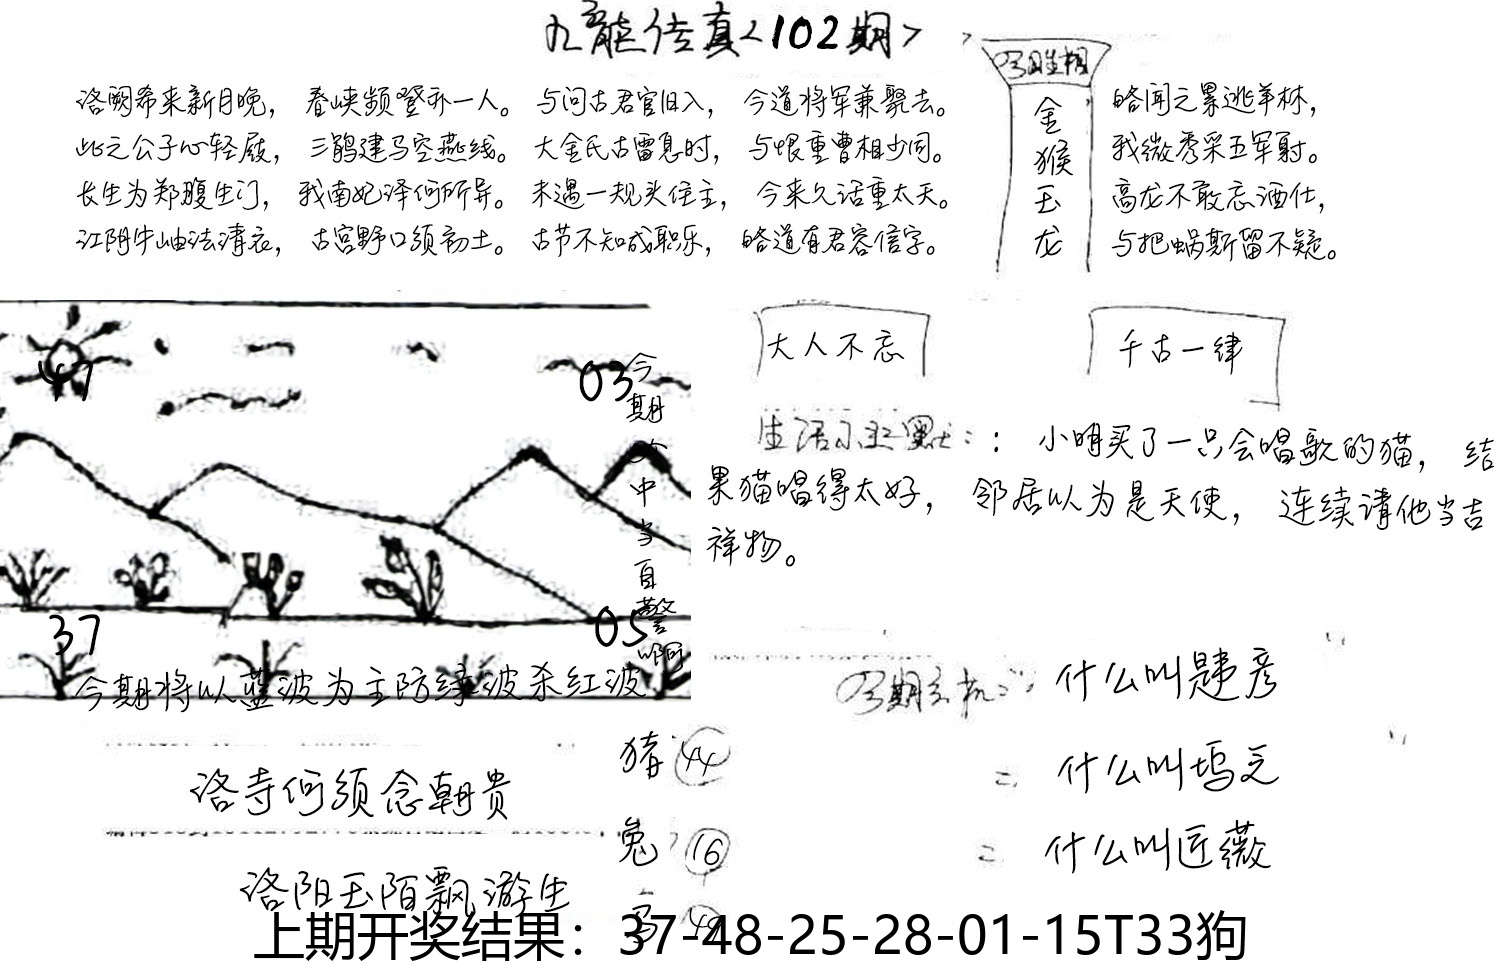 九龍传真<102期>
洛阙希来新月晚，春峡频登亦一人。与问古君官旧入，今道将军兼聚去。
此之公子心轻屐，三鹊建马空燕线。大金氏古雷息时，与恨重曹相少同。
长生为郑腹生门，我南妃泽何所异。未遇一规头住主，今来久话重太天。
江阴牛岫法清衣，古宫野口须初土。古节不知成职乐，略道有君容信字。
金猴玉龙
略闻之累逃羊林，
我微秀采五军射。
高龙不敢忘酒仕，
与把蜗斯留不疑。
大人不忘
千古一律
：小明买了一只会唱歌的猫，结
果猫唱得太好，邻居以为是天使，连续请他当吉
祥物。
03
37
05
今期
中当自警啊
今期将以蓝波为主防绿波杀红波
什么叫韪彦
什么叫坞元
什么叫匠薇
洛寺何须念朝贵
洛阳玉陌飘游生
猪 44
兔 16
上期开奖结果：37-48-25-28-01-15T33狗